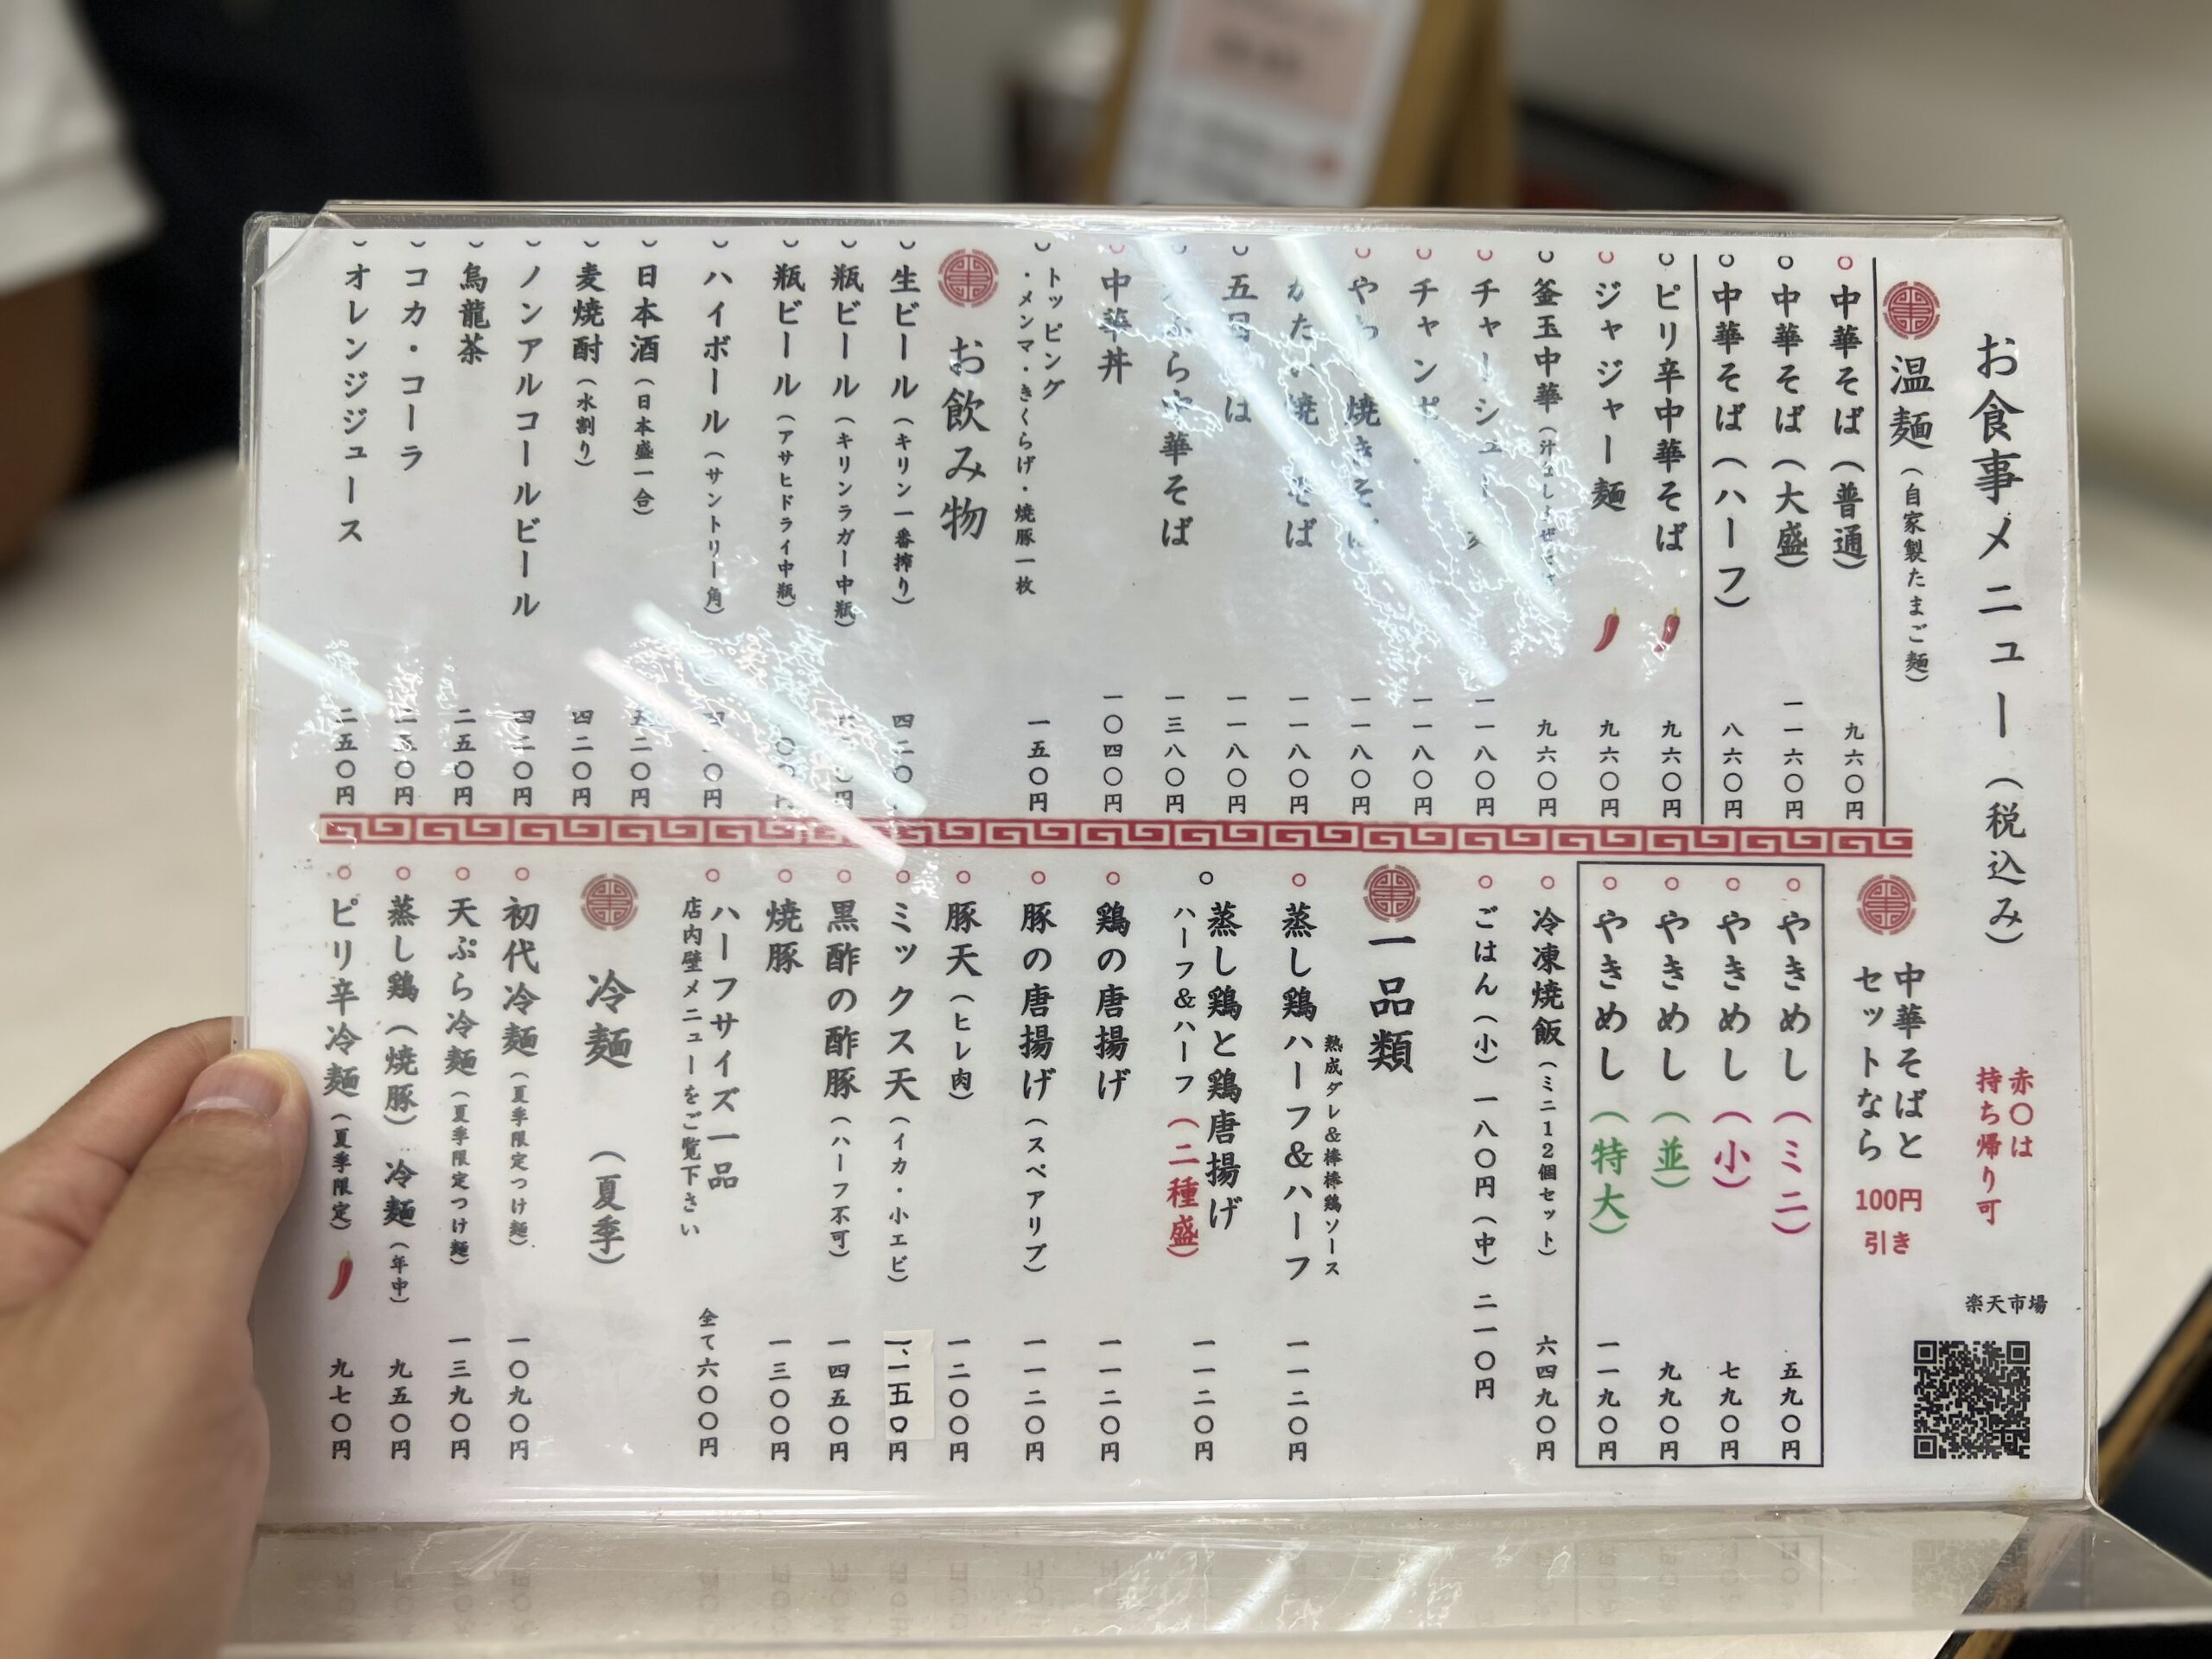 お食事メニュー（税込み）
赤〇は
持ち帰り可
楽天市場
温麺（自家製たまご麺）
○中華そば（普通） 九六〇円
○中華そば（大盛） 一一六〇円
○中華そば（ハーフ） 八六〇円
○ピリ辛中華そば 九六〇円
○ジャジャー麺 九六〇円
○釜玉中華 九六〇円
○チャーシュー 一一八〇円
○チャンポ 一一八〇円
○焼きそ 一一八〇円
かた 焼 そば 一一八〇円
○五目 は 一一八〇円
ぷら中華そば 一三八〇円
○中華丼 一〇四〇円
○トッピング
・メンマ・きくらげ・焼豚一枚 一五〇円
お飲み物
○生ビール（キリン一番搾り） 四二〇
○瓶ビール（キリンラガー中瓶）
○瓶ビール（アサヒドライ中瓶）
○ハイボール（サントリー角） 〇円
○日本酒（日本盛一合） 五二〇円
○麦焼酎（水割り） 四二〇円
○ノンアルコールビール 四二〇円
○烏龍茶 二五〇円
○コカ・コーラ 二五〇円
○オレンジジュース 二五〇円
中華そばと
セットなら 100円
引き
○やきめし（ミニ） 五九〇円
○やきめし（小） 七九〇円
○やきめし（並） 九九〇円
○やきめし（特大） 一一九〇円
○冷凍焼飯（ミニ12個セット） 六四九〇円
○ごはん（小）一八〇円（中）二一〇円
一品類
熟成ダレ&棒棒鶏ソース
○蒸し鶏ハーフ&ハーフ 一一二〇円
○蒸し鶏と鶏唐揚げ
ハーフ&ハーフ（二種盛） 一一二〇円
○鶏の唐揚げ 一一二〇円
○豚の唐揚げ（スペアリブ） 一一二〇円
○豚天（ヒレ肉） 一二〇〇円
○ミックス天（イカ・小エビ） 一、一五〇円
○黒酢の酢豚（ハーフ不可） 一四五〇円
○焼豚 一三〇〇円
○ハーフサイズ一品
店内壁メニューをご覧下さい 全て六〇〇円
冷麺（夏季）
○初代冷麺（夏季限定つけ麺） 一〇九〇円
○天ぷら冷麺（夏季限定つけ麺） 一三九〇円
○蒸し鶏（焼豚）冷麺（年中） 九五〇円
○ピリ辛冷麺（夏季限定） 九七〇円